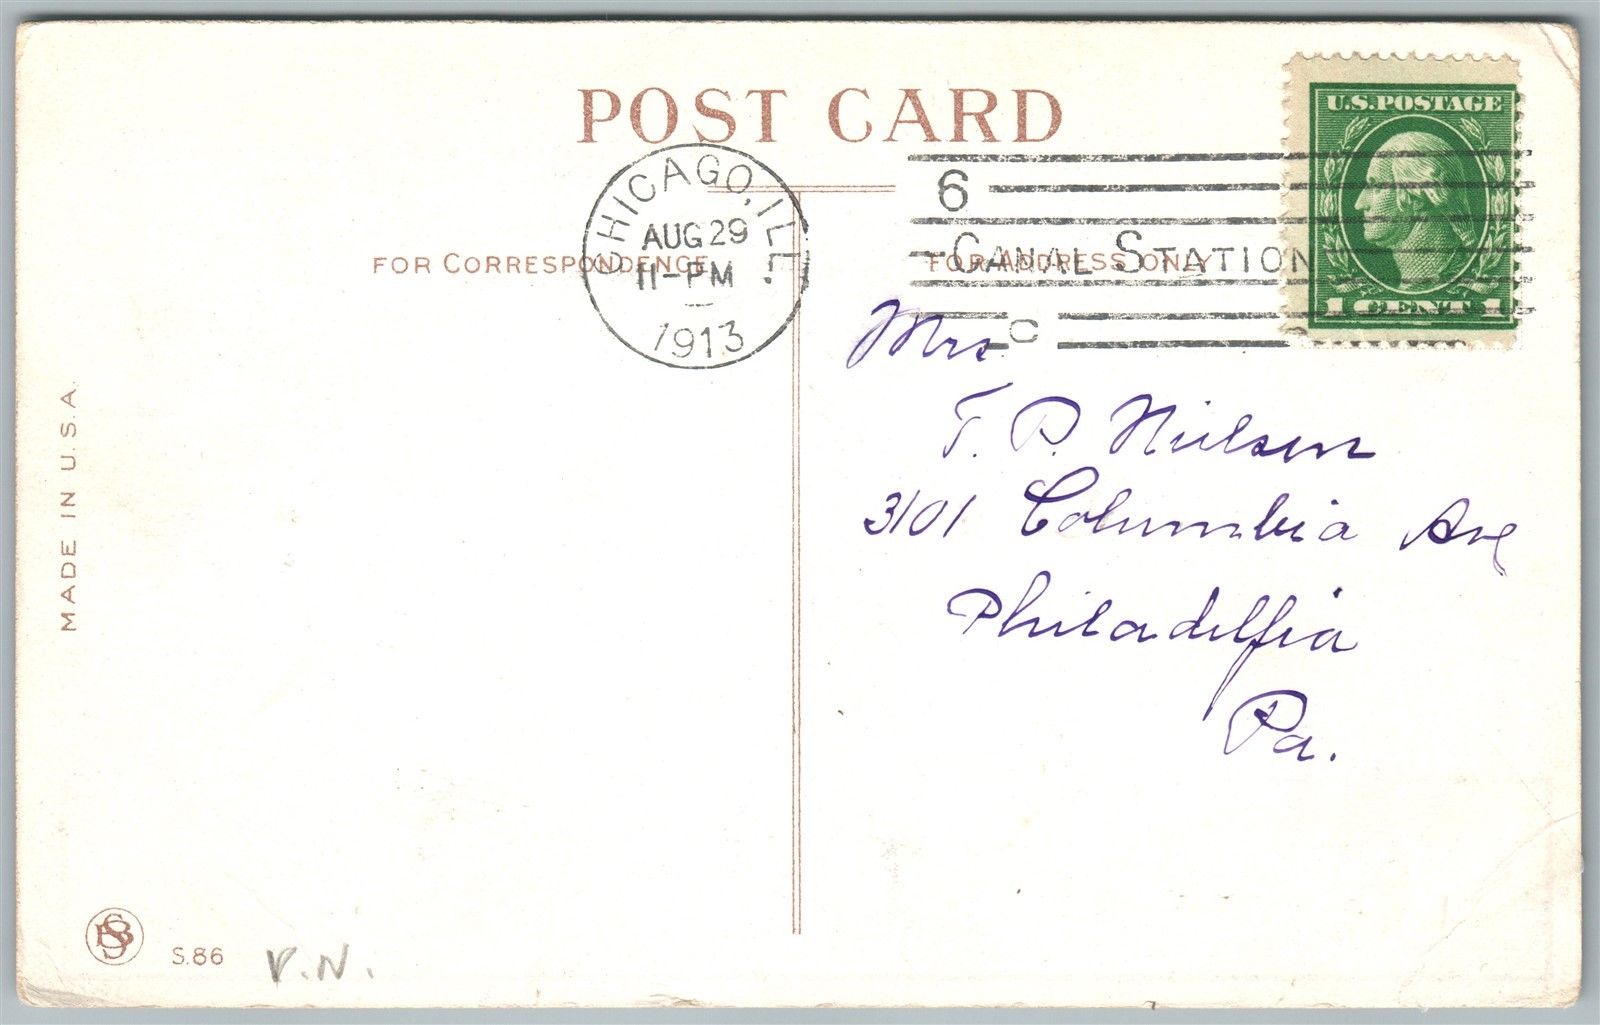 POST CARD
U.S. POSTAGE
1 CENT 1
CHICAGO, ILL.
AUG 29
11-PM
1913
6
CANAL STATION
C
FOR CORRESPONDENCE
FOR ADDRESS ONLY
Mrs
T. P. Nielsen
3101 Columbia Ave
Philadelfia
Pa.
MADE IN U.S.A.
S.86
V.N.